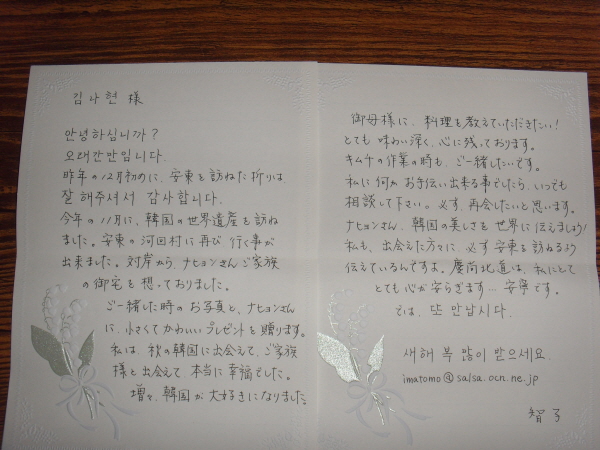 김나현 様
안녕하십니까?
오래간만입니다.
昨年の12月初めに、安東を訪ねた折りは
잘 해주셔서 감사합니다.
今年の11月に、韓国の世界遺産を訪ね
ました。安東の河回村に再び行く事が
出来ました。対岸から、ナヒョンさんご家族
の御宅を想っておりました。
ご一緒した時のお写真と、ナヒョンさん
に、小さくてかわいいプレゼントを贈ります。
私は、秋の韓国に出会えて、ご家族
様と出会えて、本当に幸福でした。
増々、韓国が大好きになりました。
御母様に、料理を教えていただきたい!
とても 味わい深く、心に残っております。
キムチの作業の時も、ご一緒したいです。
私に何か お手伝い出来る事でしたら、いつでも
相談して下さい。必ず、再会したいと思います。
ナヒョンさん、韓国の美しさを世界に伝えましょう!
私も、出会えた方々に、必ず安東を訪ねるよう
伝えているんですよ。慶尚北道は、私にとって
とても心が安らぎます… 安寧です。
では、또 만납시다.
새해 복 많이 받으세요.
imatomo@salsa.ocn.ne.jp
智子